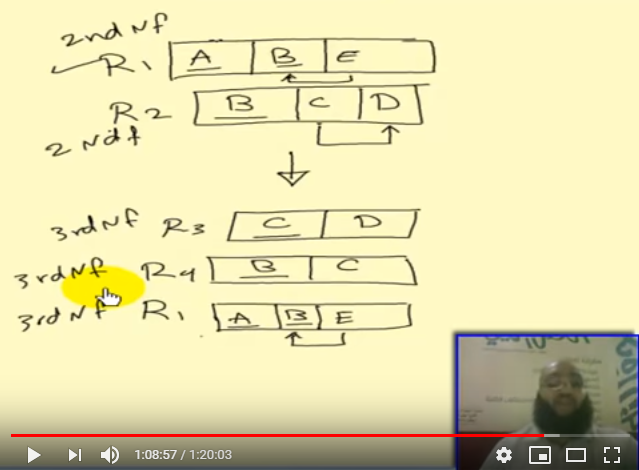 2nd Nf
R1 A B E
R2 B C D
2 Ndf
3rd Nf R3 C D
3rd Nf R4 B C
3rd Nf R1 A B E
1:08:57 / 1:20:03